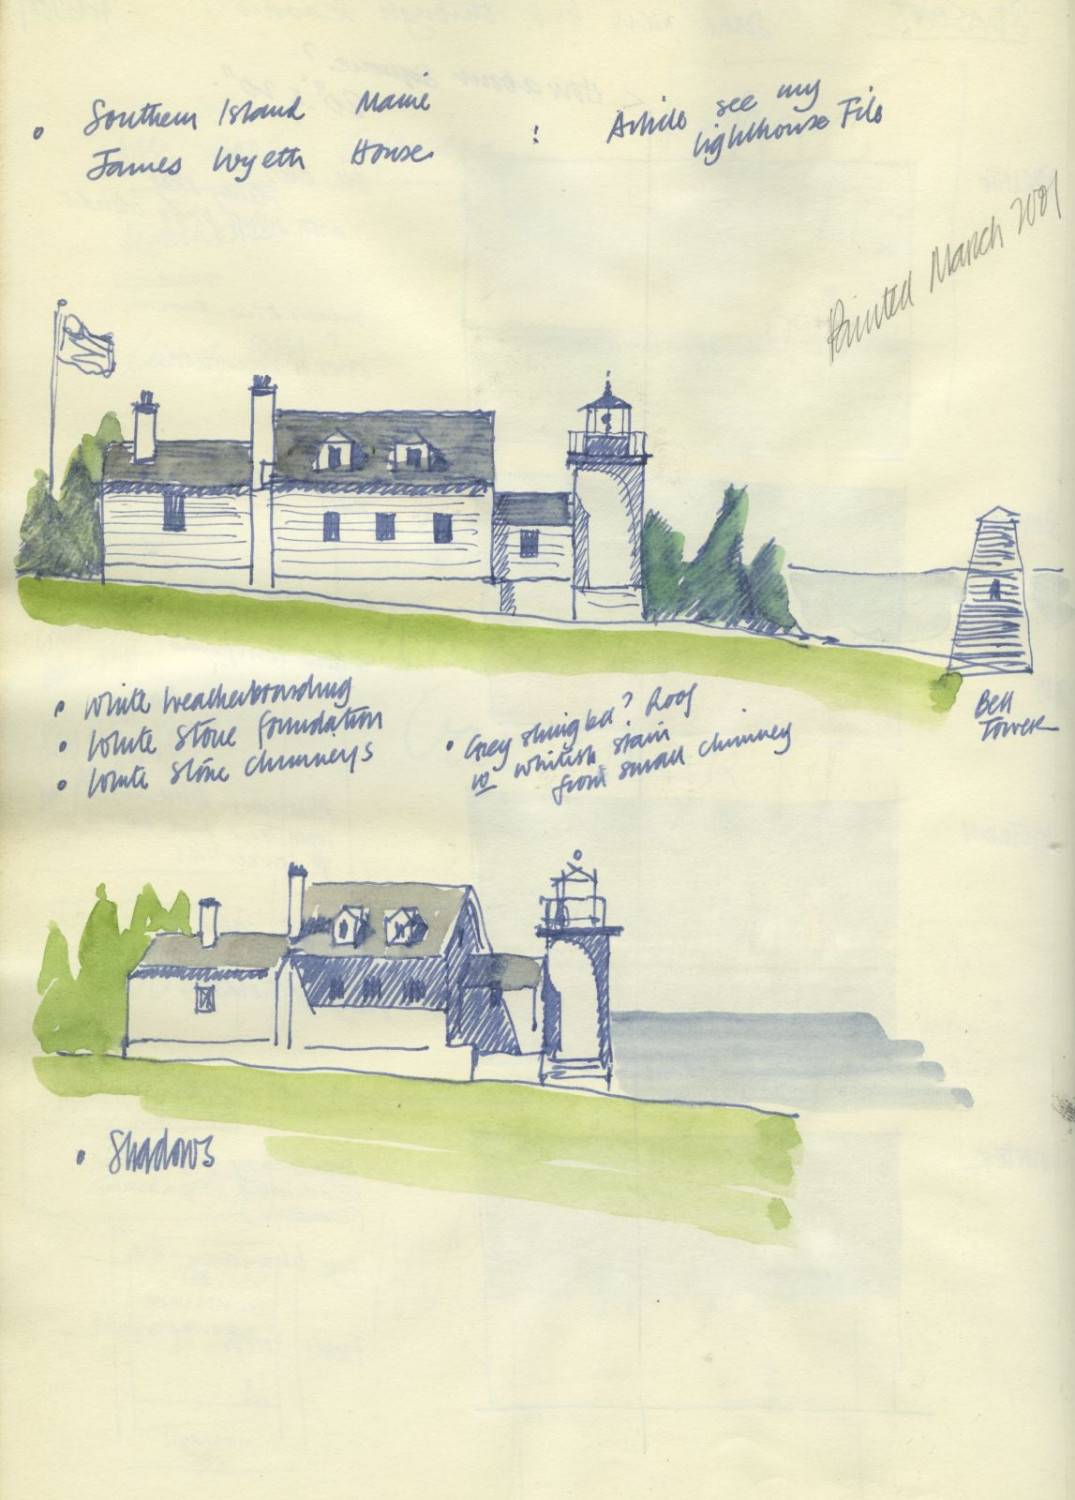 • Southern Island Maine
James Wyeth House
: Article see my
lighthouse File
Painted March 2001
• White Weatherboarding
• White Stone foundation
• White Stone chimneys
• Grey shingled? Roof
w whitish stain
from small chimney
Bell
Tower
• Shadows